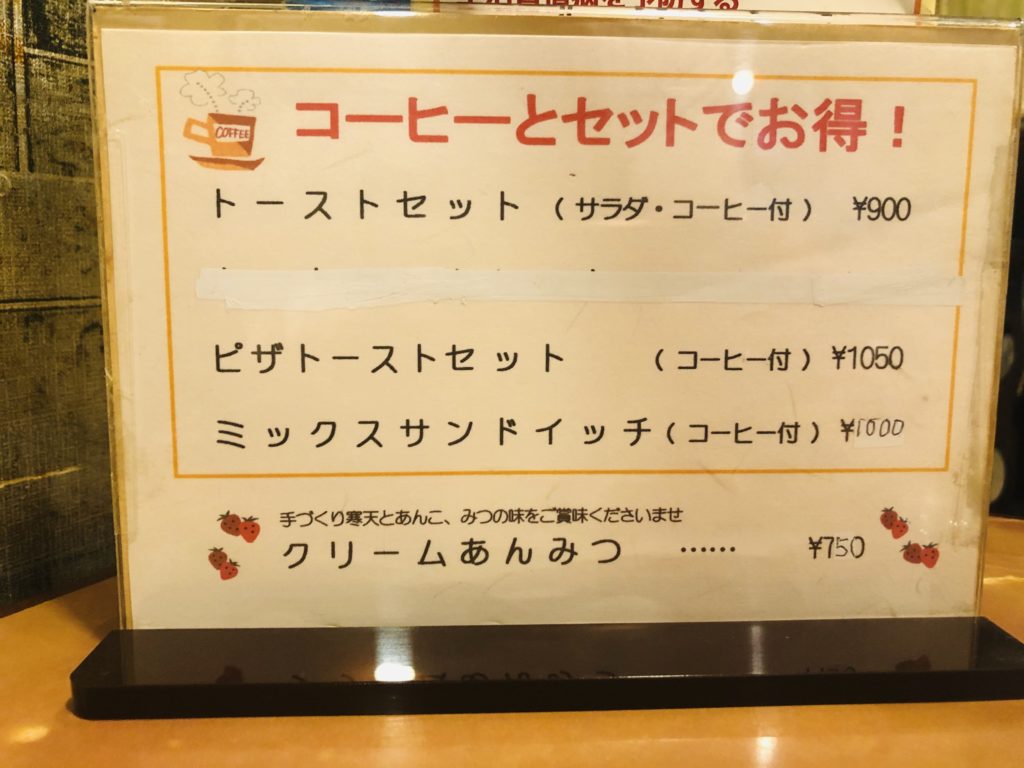 コーヒーとセットでお得！
COFFEE
トーストセット（サラダ・コーヒー付） ¥900
ピザトーストセット （コーヒー付） ¥1050
ミックスサンドイッチ（コーヒー付） ¥1000
手づくり寒天とあんこ、みつの味をご賞味くださいませ
クリームあんみつ …… ¥750